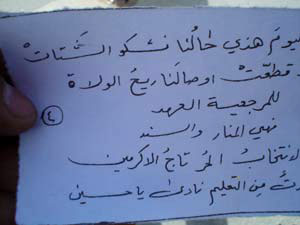 ليوم هذي حالُنا نشكو الشَّتاتْ
قطّعتْ اوصالَنا ريحُ الولاة
للمرجعية العهد
٤
فهي المنار والسند
لانتخابُ الحُر تاجُ الاكرمين
وتُ مِن التعليم نادىٰ يا حسين